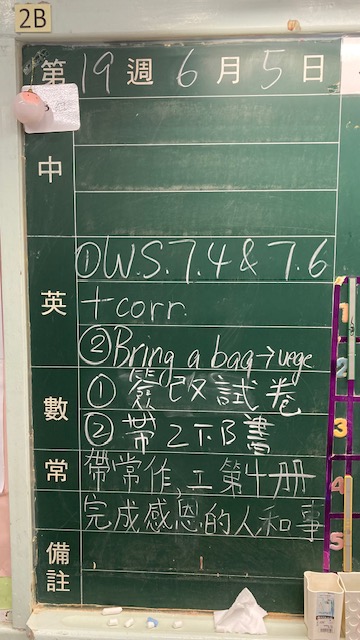 2B
第19週6月5日
中
英 ①W.S.7.4 & 7.6
+corr.
②Bring a bag→vege
數 ① 簽改試卷
② 帶2下B書
常 帶常作,工第十册
完成感恩的人和事
備註
1
2
3
4
5